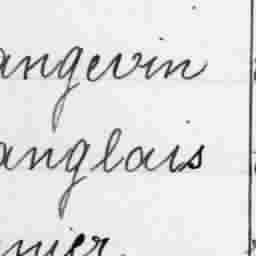 angevin
anglais
nier.